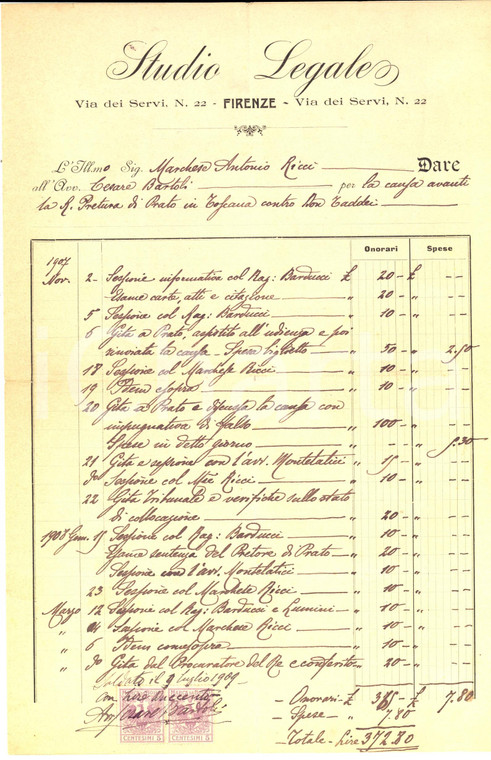 Studio Legale
Via dei Servi, N. 22 - FIRENZE - Via dei Servi, N. 22
L'Ill.mo Sig. Marchese Antonio Ricci Dare
all'Avv. Cesare Bartoli per la causa avanti
la R. Pretura di Prato in Toscana contro Don Taddei
Onorari Spese
1907
Nov. 2 - Sessione informativa col Rag: Barducci £ 20 - £ --
Esame carte, atti e citazione " 20 - " --
5 Sessione col Rag: Barducci " 10 - " --
6 Gita a Prato, assistito all'udienza e poi
rinviata la causa - Spese biglietto " 50 - " 2.50
18 Sessione col Marchese Ricci " 10 - " --
19 Item c. sopra " 10 - " --
20 Gita a Prato e discussa la causa con
impugnativa di falso " 100 - " --
Spese in detto giorno " - " 5.30
21 Gita e sessione con l'avv. Montelatici " 15 - " --
d° Sessione col M.se Ricci " 10 - " --
22 Gita Tribunale e verifiche sullo stato
di collocazione " 20 - " --
1908 Genn. 15 Sessione col Rag: Barducci " 10 - " --
Esame sentenza del Pretore di Prato " 20 - " --
Sessione con l'avv. Montelatici " 10 - " --
23 Sessione col Marchese Ricci " 10 - " --
Marzo 12 Sessione col Rag: Barducci e Lumini " 10 - " --
" 14 Sessione col Marchese Ricci " 10 - " --
" 6 Item come sopra " 10 - " --
" d° Gita del Procuratore del Re e conferito " 20 - " --
Saldata il 9 luglio 1909
con Lire duecento - Onorari £ 365 - £ 7.80
Avv. Cesare Bartoli - Spese " 7.80
CENTESIMI 5 CENTESIMI 5 - Totale - Lire 372.80